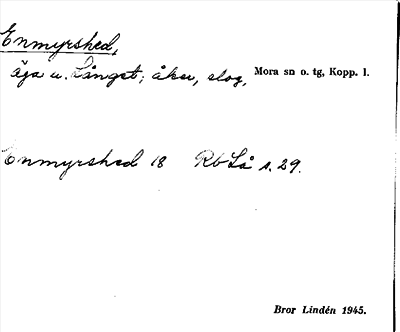 Enmyrshed,
äga u. Långet; åker, slog, Mora sn o. tg, Kopp. l.
Enmyrshed 18 Rb Lå s. 29.
Bror Lindén 1945.